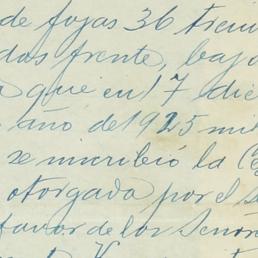 de fojas 36 trein
dos frente, bajo
que en 17 dic
año de 1925 mil
se inscribió la
otorgada por el
favor de los Señor